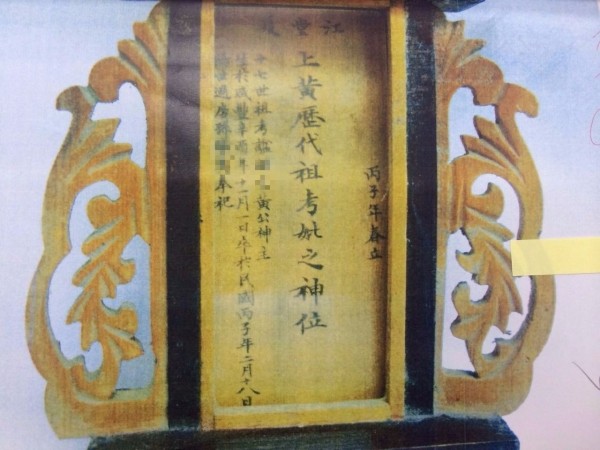 江堂夏
丙子年春立
上黃歷代祖考妣之神位
十七世祖考 黃公神主
生於咸豐辛酉年十一月一日卒於民國丙子年二月十八日
奉祀